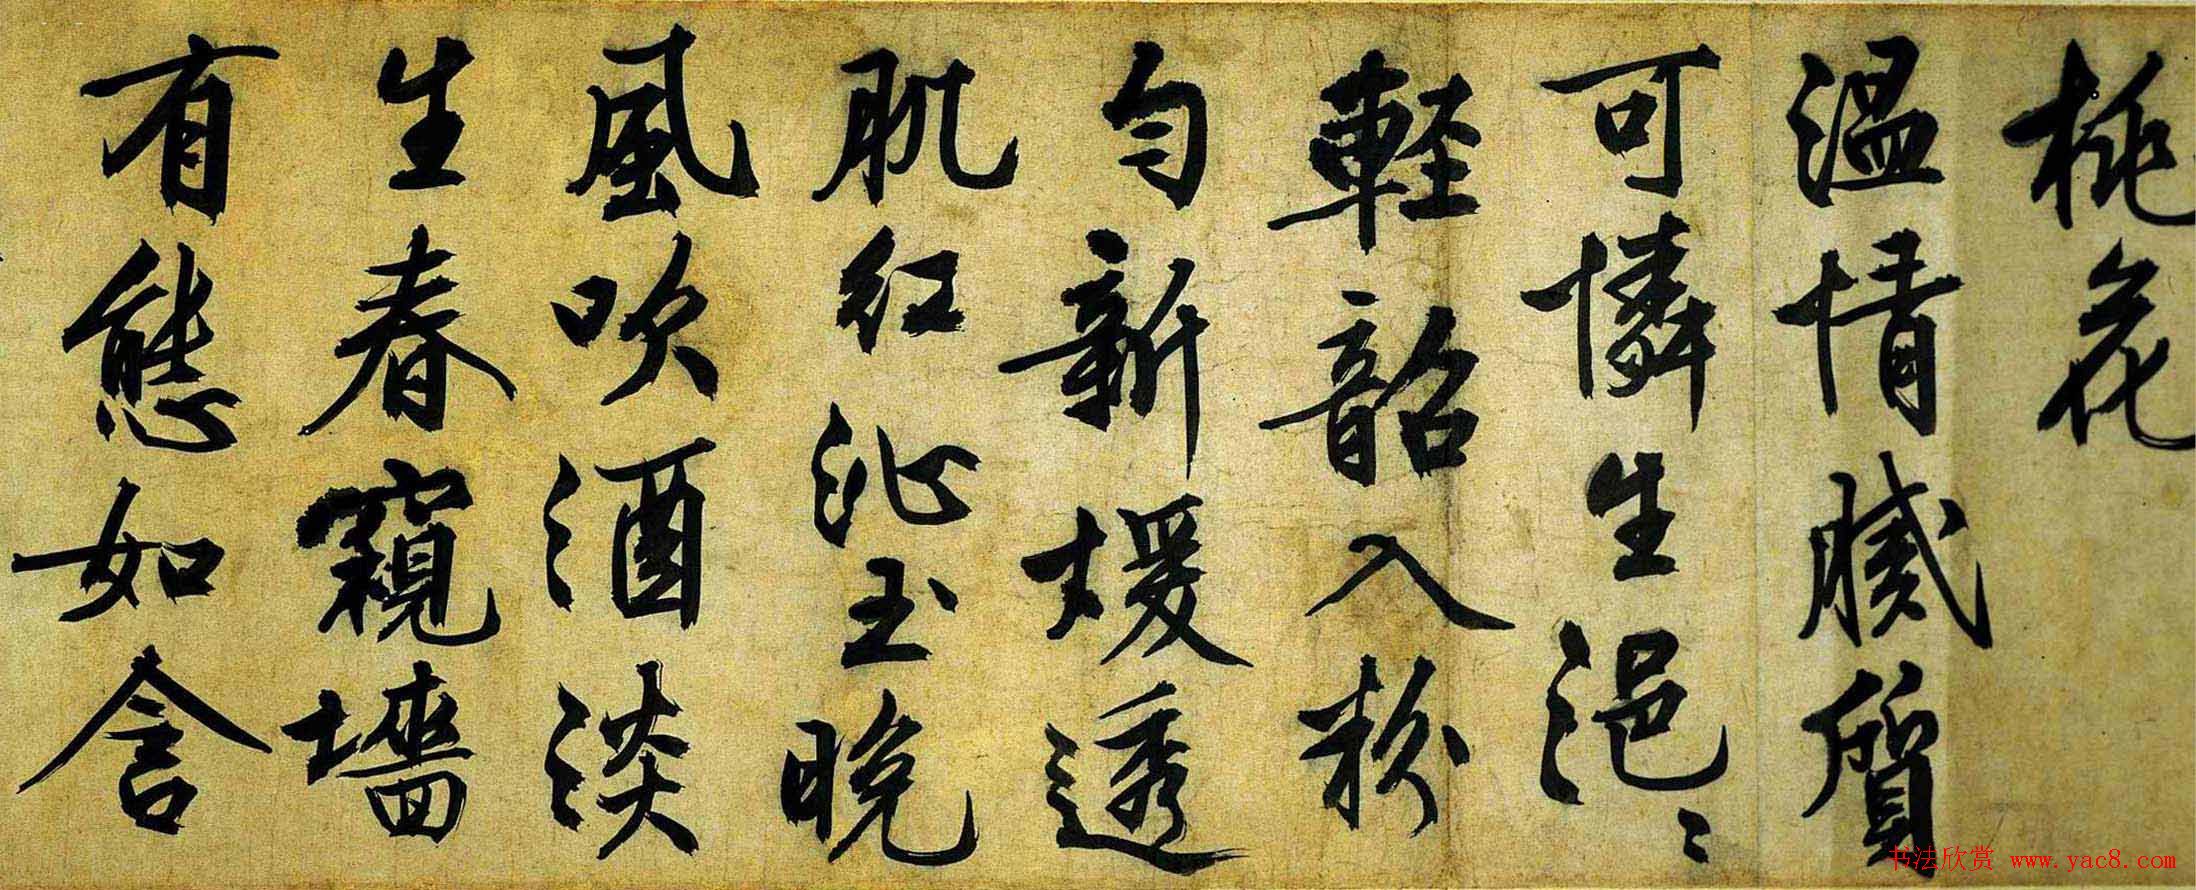 桃花
溫情膩質
可憐生浥〻
輕韶入粉
勻新煖透
肌紅沁玉晚
風吹酒淡
生春窺墻
有態如含
书法欣赏 www.yac8.com